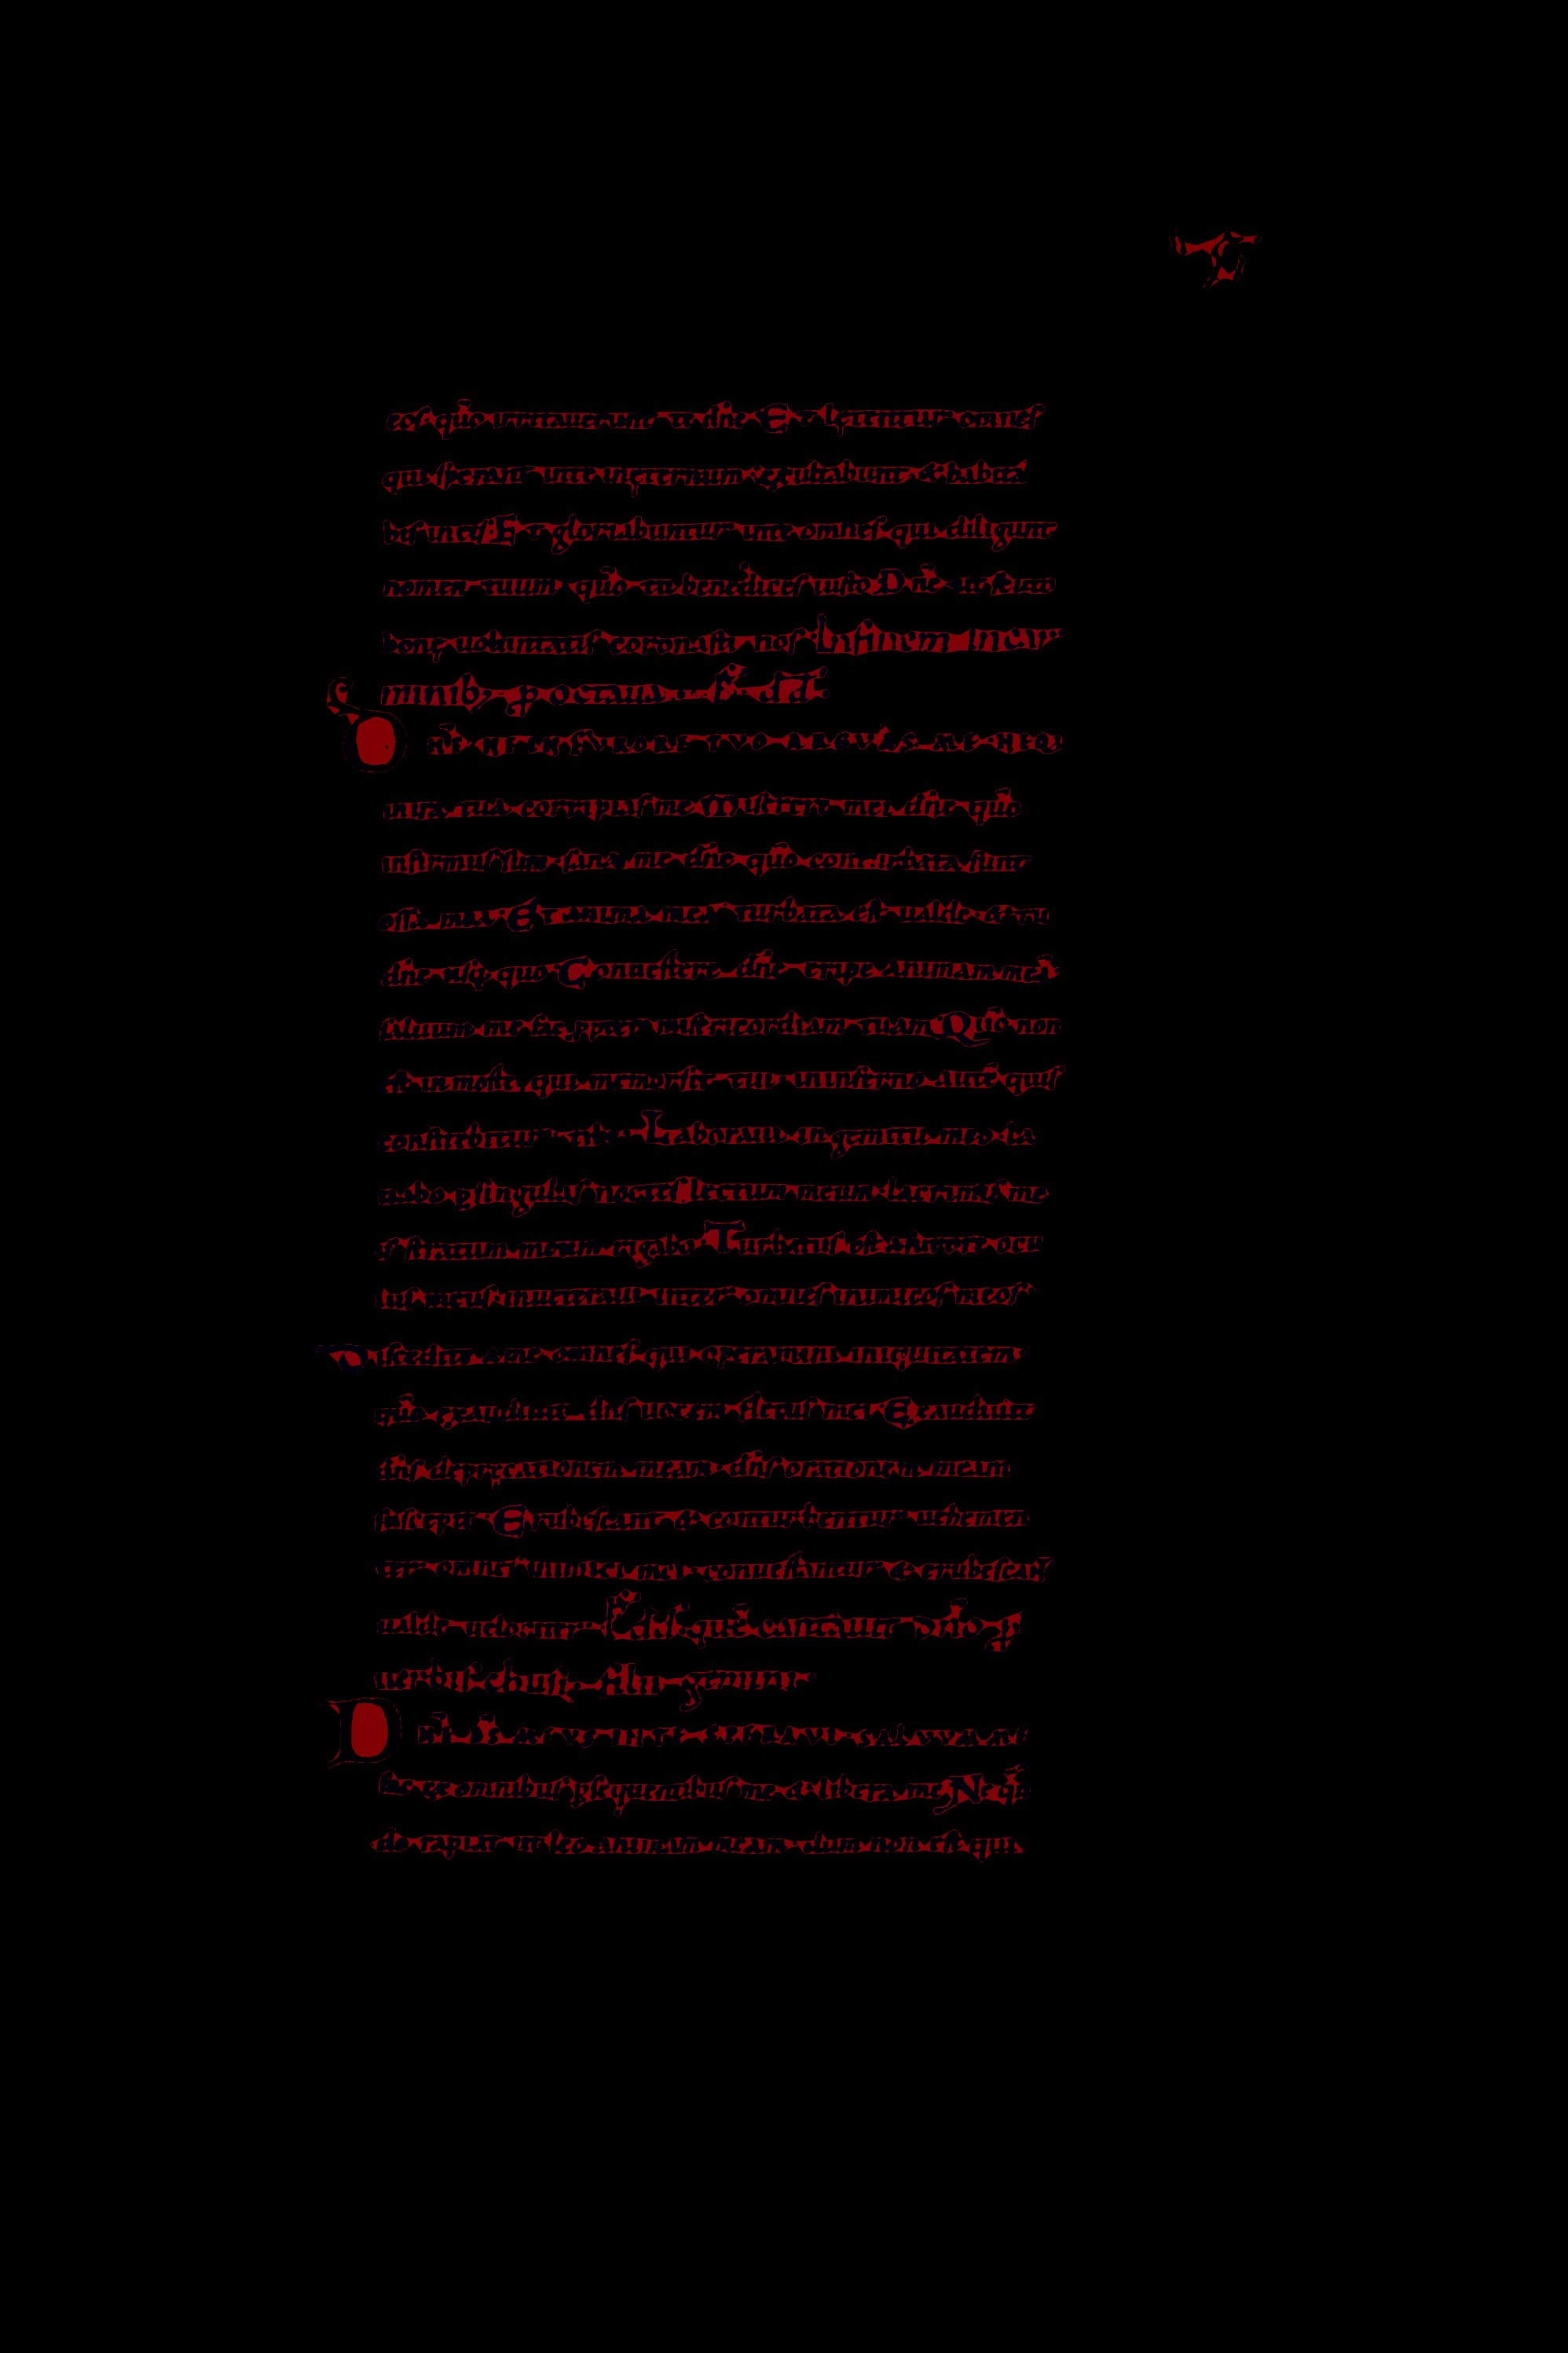 eos quō irritauerunt te dn̄e Et lętentur omnes
qui sperant in te in ęternum exultabunt & habitā
bis in eis Et gloriabuntur in te omnes qui diligunt
nomen tuum quō tu benedices iusto Dnē ut scuto
bonę uoluntatis coronasti nos In finem in cār
minib; p octaua ps dd
DNĒ NE IN FVRORE TVO ARGVAS ME NEQ;
in ira tua corripias me Miserere mei dn̄e quō
infirmus sum sana me dn̄e quō conturbata sunt
ossa mea Et anima mea turbata est ualde & tu
dn̄e usq; quo Conuertere dn̄e eripe animam meā
saluum me fac ppter misericordiam tuam Quō non
est in morte qui memor sit tui in inferno autē quis
confitebitur tibi Laboraui in gemitu meo la
uabo p singulas noctes lectum meum lacrimis me
is stratum meum rigabo Turbatus est a furore ocu
lus meus inueteraui inter omnes inimicos meos
Discedite a me omnes qui operamini iniquitatem
quō exaudiuit dn̄s uocem fletus mei Exaudiuit
dn̄s deprecationem meam dn̄s orationem meam
suscepit Erubescant & conturbentur uehemen
ter omnes inimici mei conuertantur & erubescant
ualde uelociter dd quē cantauit dn̄o p
uerbis chusi filii gemini
DNĒ DS MEVS IN TE SPERAVI SALVVM ME
fac ex omnibus psequentibus me & libera me Ne qn̄
do rapiat ut leo animam meam dum non est qui